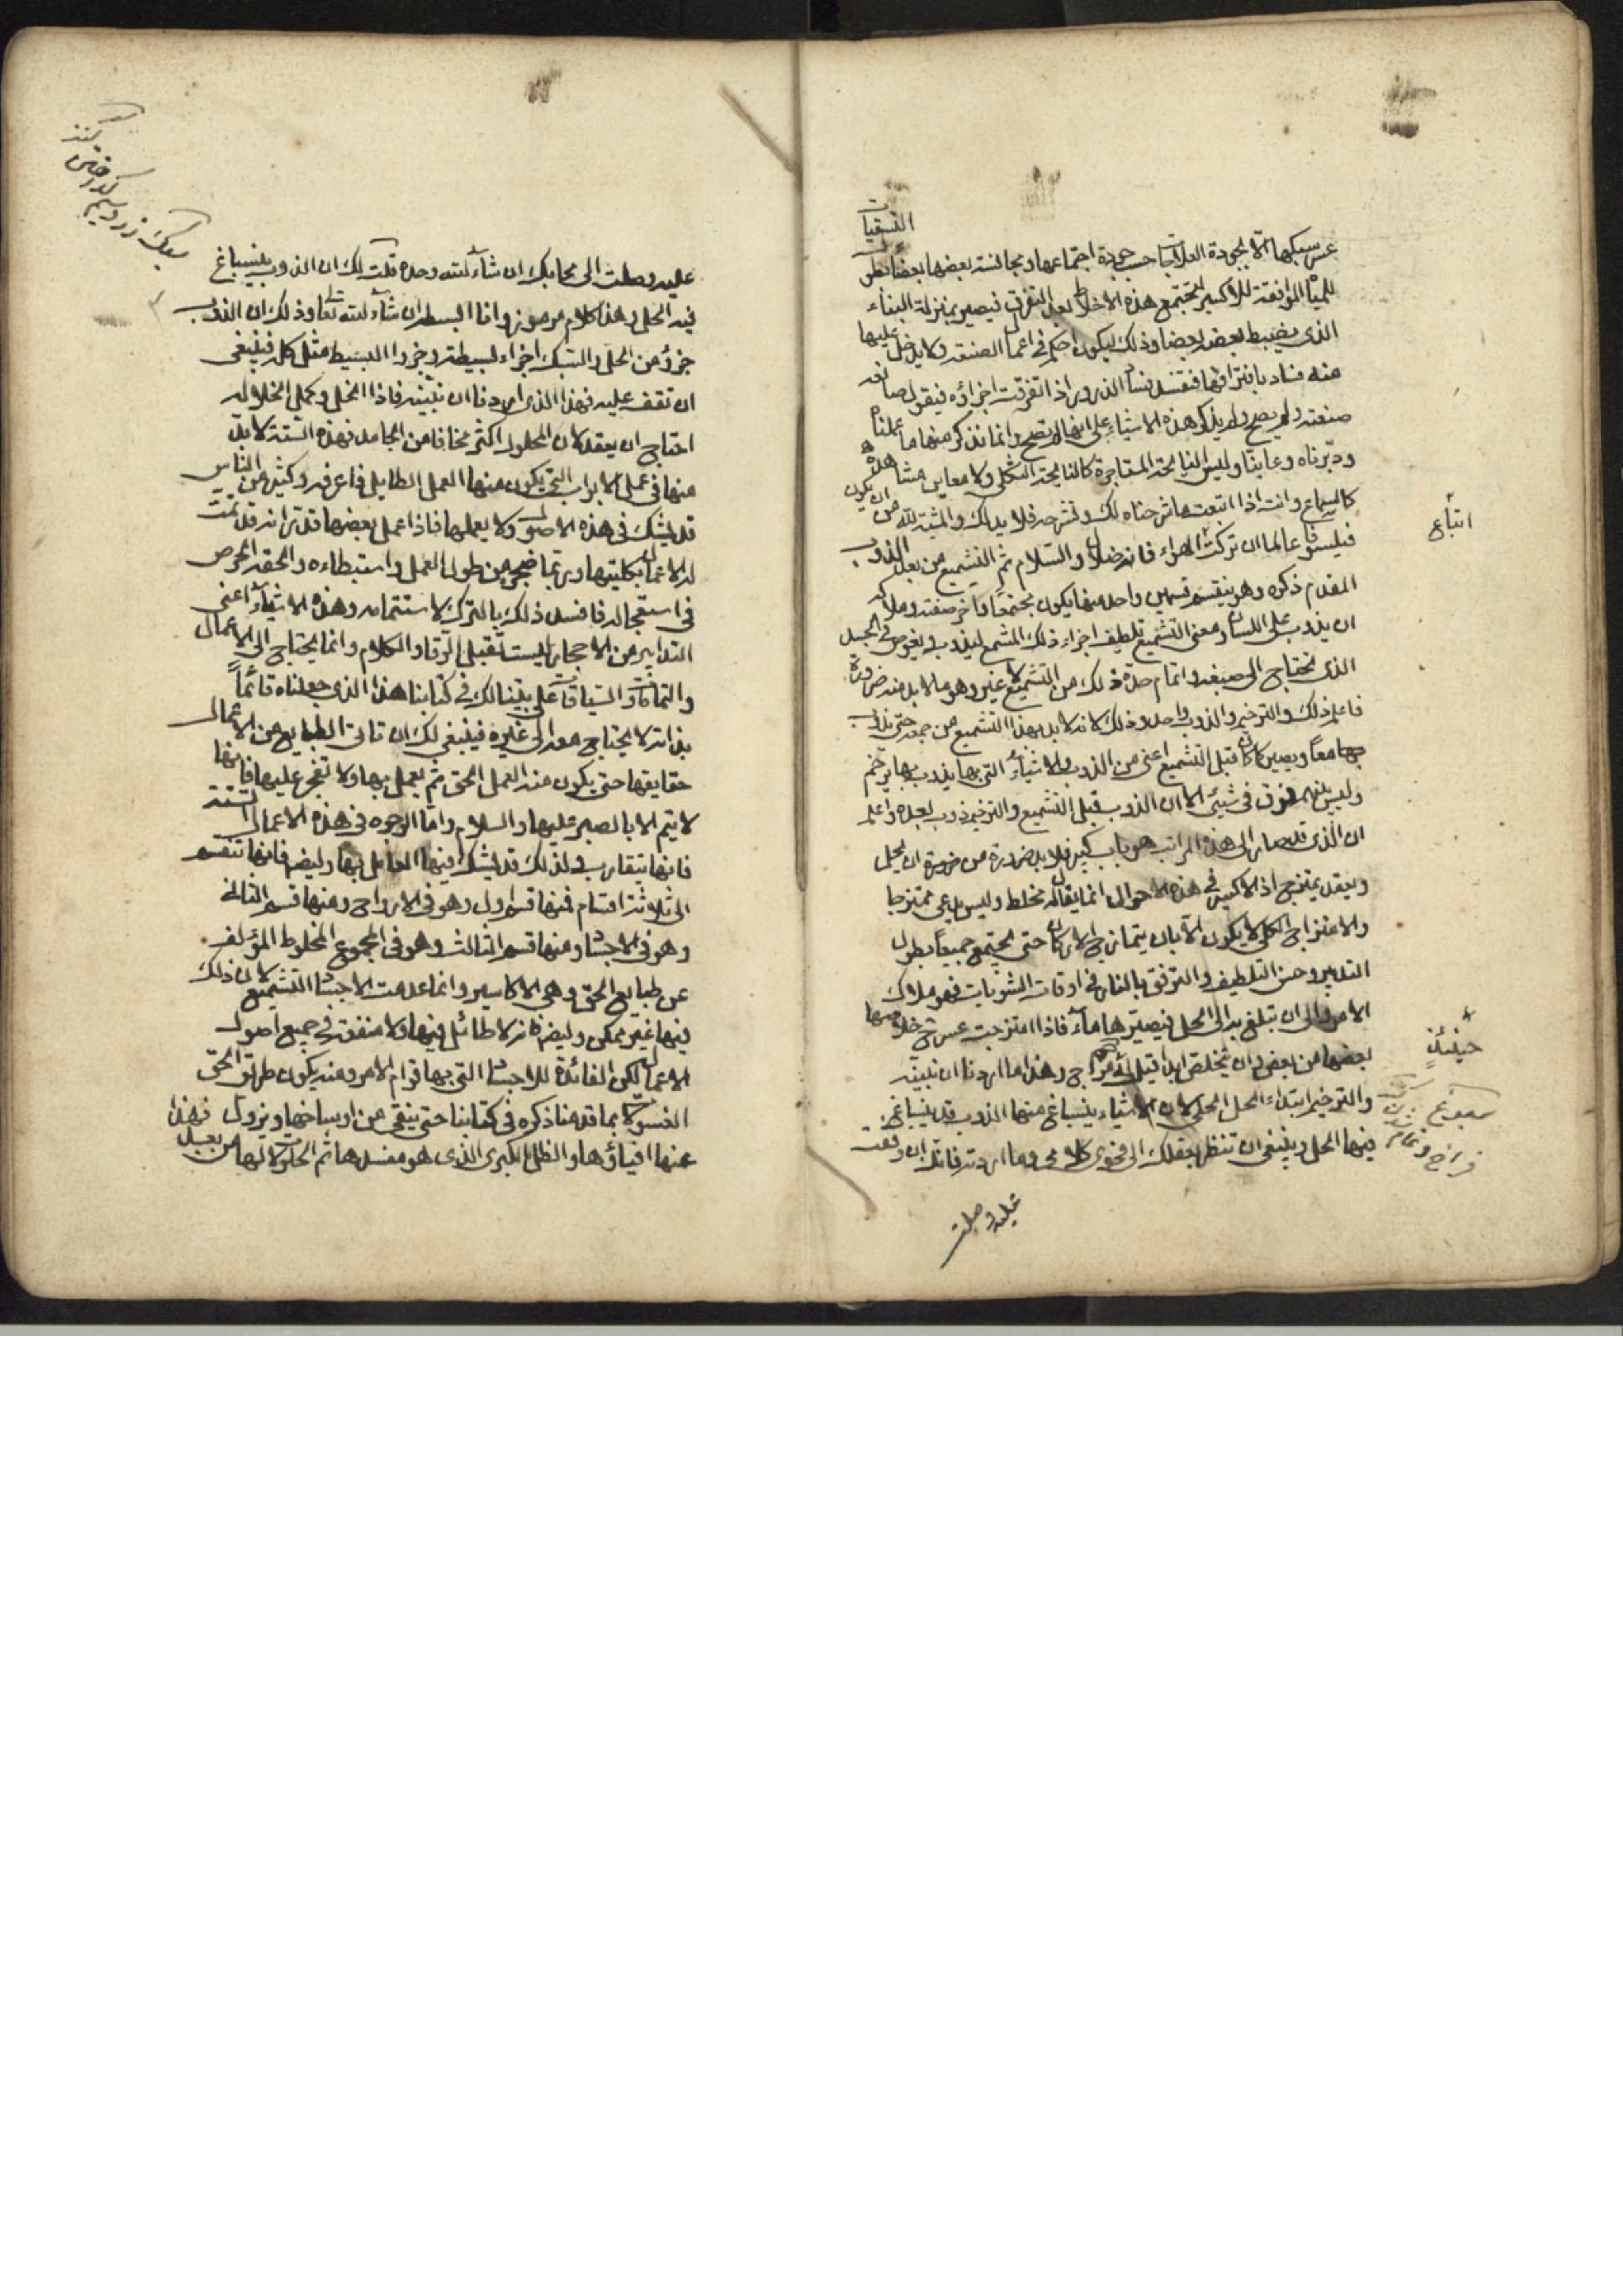 التسقيات
عسر سبكها الا بجودة العلاجات حسب جودة اجتماعها ومجالسته بعضها بعضا
للمياه الموافقة للاكسير لتجتمع هذه الاخلاط بعد التفرق فيصير بمنزلة البناء
الذي يضبط بعضه بعضا وذلك ليكون احكم في اعمال الصنعة ولا يدخل عليها
منه فساد بافتراقها فتفسد فساد الذي اذا تفرقت اجزاؤه فيقول صانعه
صنعته ولم يصح ولم يذكر هذه الاشياء على انها لا تصح وانما نذكر منها ما عملناه
ودبرناه وعايناه وليس النايحة المستاجرة كالنايحة الثكلى ولا معاين مشاهدة
كالسماع وانت اذا اتبعت ما شرحناه لك ونشرحه فلا بد لك والمشية لله من ان يكون
فيلسوفا عالما ان تركت الهواء فانه ضلال والسلام ثم التشميع من بعد الذوب
المقدم ذكره وهو ينقسم قسمين واحد منها يكون مجتمعا في اخر صنعته وملاكه
ان يذوب على اللسان ومعنى التشميع تلطيف اجزاء ذلك المشمع ليذوب ويغوص في الجسد
الذي يحتاج الى صبغه واتمام حده ذلك من التشميع لا غير وهو ما لا بد منه ضرورة
فاعلم ذلك والترخيم والذوب واحد وذلك كانه لا بد بهذا التشميع من جمعه حتى يذوب
بها معا ويصير كما كان قبل التشميع اعني من الذوب والاشياء التي بها يذوب بها يرخم
وليس بينهم فرق في شيئ الا ان الذوب قبل التشميع والترخيم ذوب بعده واعلم
ان الذي قد صار الى هذه المراتب هو باب كبير فلا بد ضرورة من ضرورة ان يحل
ويعقد يمتزج اذ الاكسير في هذه الاحوال انما يقال له مخلط وليس يدعى ممتزجا
والامتزاج الكلي لا يكون الا بان يتمازج الاركان حتى يجتمع جميعا بطول
التدبير وحسن التلطيف والترفق بالنار في اوقات التشويات فهو ملاك
الامر والى ان تبلغ به الى الحل فيصيرها ماء فاذا امتزجت عسر خلاصها
بعضها من بعض وان يتخلص ابدا قيل له مزاج وهذا ما اردنا ان نبينه
والترخيم ابتداء الحل الحلي لان الاشياء ينساغ منها الذوب قد ينساغ
فيها الحل وينبغي ان تنظر بعقلك الى فحوى كلامي وما اردته فانك ان وقعت
عليه وصلت
اتباع
حينئذ
عليه وصلت الى محابك ان شاء لله وحده قلت لك ان الذوب ينساغ
فيه الحل وهذا كلام مرموز وانا ابسطه ان شاء لله تعالى وذلك ان الذوب
جزؤ من الحل والسبك اجزاء بسيطة وجزؤ البسيط مثل كله فينبغي
ان تقف عليه فهذا الذي اردنا ان نبينه فاذا انحل وكمل انحلاله
احتاج ان يعقد لان المحلول اكثر مخافا من الجامد فهذه الستة لا بد
منها في عمل الابواب التي يكون منها العمل الطايل فاعرفه وكثير من الناس
قد يشك في هذه الاصول ولا يعملها فاذا عمل بعضها قد تراه قد تمت
له الاعمال بكليتها وربما ضجر من طول العمل واستبطاءه والحقه الحرص
في استعجاله فافسد ذلك بالترك لاستتمامه وهذه الاشياء اعني
التدابير من الاحجار ليست تقبل الرقا والكلام وانما يحتاج الى الاعمال
والتمامات والسياقات على بيننا لك في كتابنا هذا الذي جعلناه قائما
بذاته لا يحتاج معه الى غيره فينبغي لك ان تاتي الطبايع من الاعمال
حقايقها حتى يكون منه العمل الحق ثم يعمل بها ولا تضجر عليها فانها
لا يتم الا بالصبر عليها والسلام واما الوجوه في هذه الاعمال الستة
فانها تتقارب ولذلك قد يشك فيها العامل بها وليضا فانها تنقسم
الى ثلاثة اقسام فمنها قسم اول وهو في الارواح ومنها قسم الثاني
وهو في الاجساد ومنها قسم الثالث وهو في المجموع المخلوط المؤلف
عن طبايع الحق وهي الاكاسير وانما عدمت الاجساد التشميع لان ذلك
فيها غير ممكن وليضا فانه لا طائل فيها ولا منفعة في جميع اصول
الاعمال لكن الفائدة للاجساد التي بها قوام الامر ومنه يكون طريق الحق
الغسولات بما قدمنا ذكره في كتابنا حتى ينقى من اوساخها ويزول
عنها افياؤها والظل الكبرى الذي هو مفسدها ثم الحلولات لها من بعد فهذا